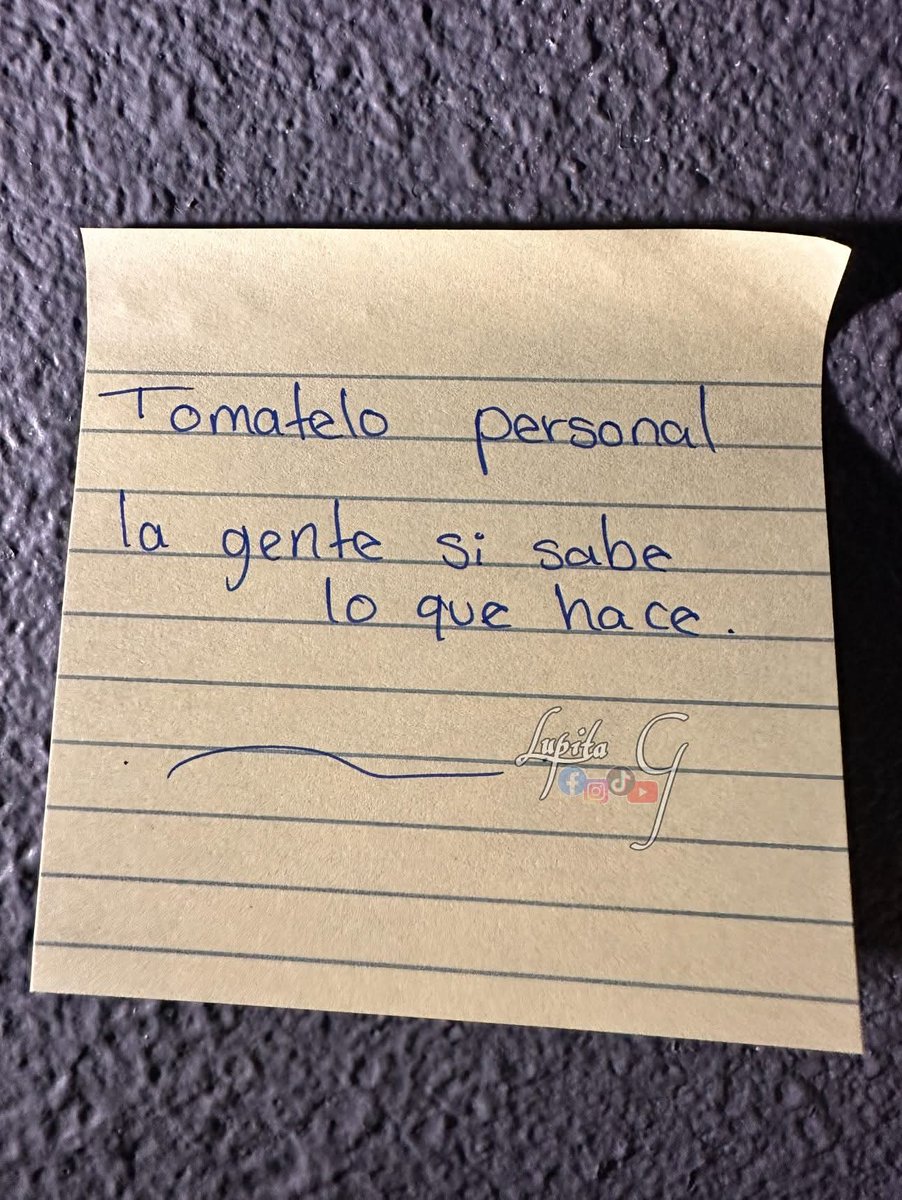 Tomatelo personal
la gente si sabe
lo que hace.
Lupita G